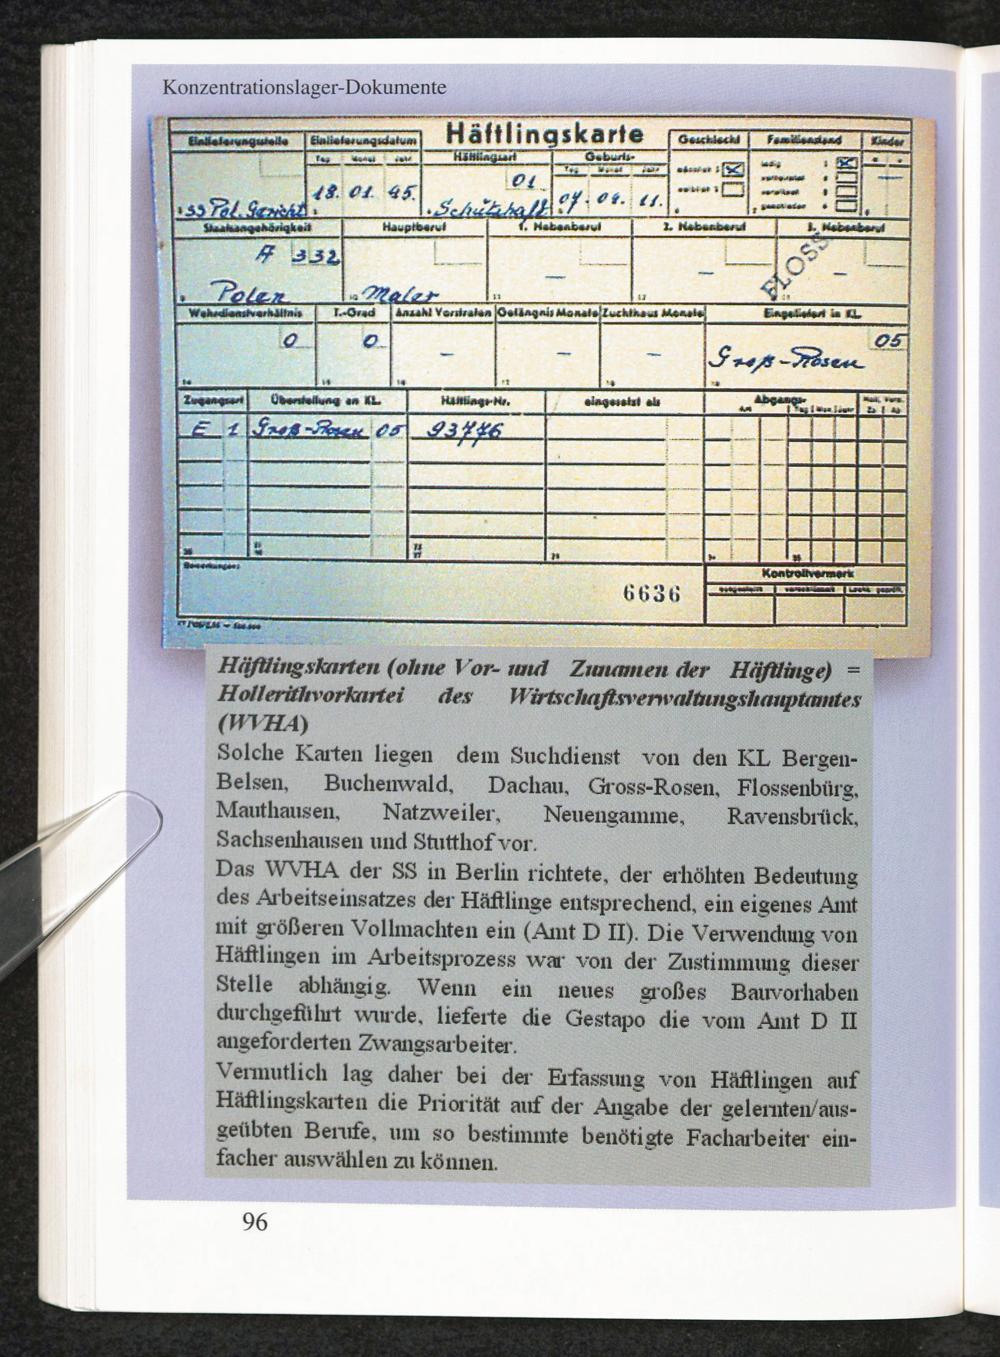 Konzentrationslager-Dokumente
Häftlingskarte
Einlieferungsstelle Einlieferungsdatum Geschlecht Familienstand Kinder
Tag Monat Jahr Häftlingsart Geburts-
Tag Monat Jahr
männlich ledig
weiblich verheiratet
verwitwet
geschieden
01
18. 01. 45.
SS Pol. Gericht Schutzhaft 07. 09. 11.
Staatsangehörigkeit Hauptberuf 1. Nebenberuf 2. Nebenberuf 3. Nebenberuf
A 332 — — —
FLOSS
Polen Maler
Wehrdienstverhältnis T.-Grad Anzahl Vorstrafen Gefängnis Monate Zuchthaus Monate Eingeliefert in KL.
0 0 — — — 05
Groß-Rosen
Zugangsart Überstellung an KL. Häftlings-Nr. eingesetzt als Abgangs-
Art Tag Mon Jahr
E 1 Groß-Rosen 05 93776
Bemerkungen:
6636
Kontrollvermerk
ausgestellt verschlüsselt Lochk. geprüft
Häftlingskarten (ohne Vor- und Zunamen der Häftlinge) =
Hollerithvorkartei des Wirtschaftsverwaltungshauptamtes
(WVHA)
Solche Karten liegen dem Suchdienst von den KL Bergen-
Belsen, Buchenwald, Dachau, Gross-Rosen, Flossenbürg,
Mauthausen, Natzweiler, Neuengamme, Ravensbrück,
Sachsenhausen und Stutthof vor.
Das WVHA der SS in Berlin richtete, der erhöhten Bedeutung
des Arbeitseinsatzes der Häftlinge entsprechend, ein eigenes Amt
mit größeren Vollmachten ein (Amt D II). Die Verwendung von
Häftlingen im Arbeitsprozess war von der Zustimmung dieser
Stelle abhängig. Wenn ein neues großes Bauvorhaben
durchgeführt wurde, lieferte die Gestapo die vom Amt D II
angeforderten Zwangsarbeiter.
Vermutlich lag daher bei der Erfassung von Häftlingen auf
Häftlingskarten die Priorität auf der Angabe der gelernten/aus-
geübten Berufe, um so bestimmte benötigte Facharbeiter ein-
facher auswählen zu können.
96